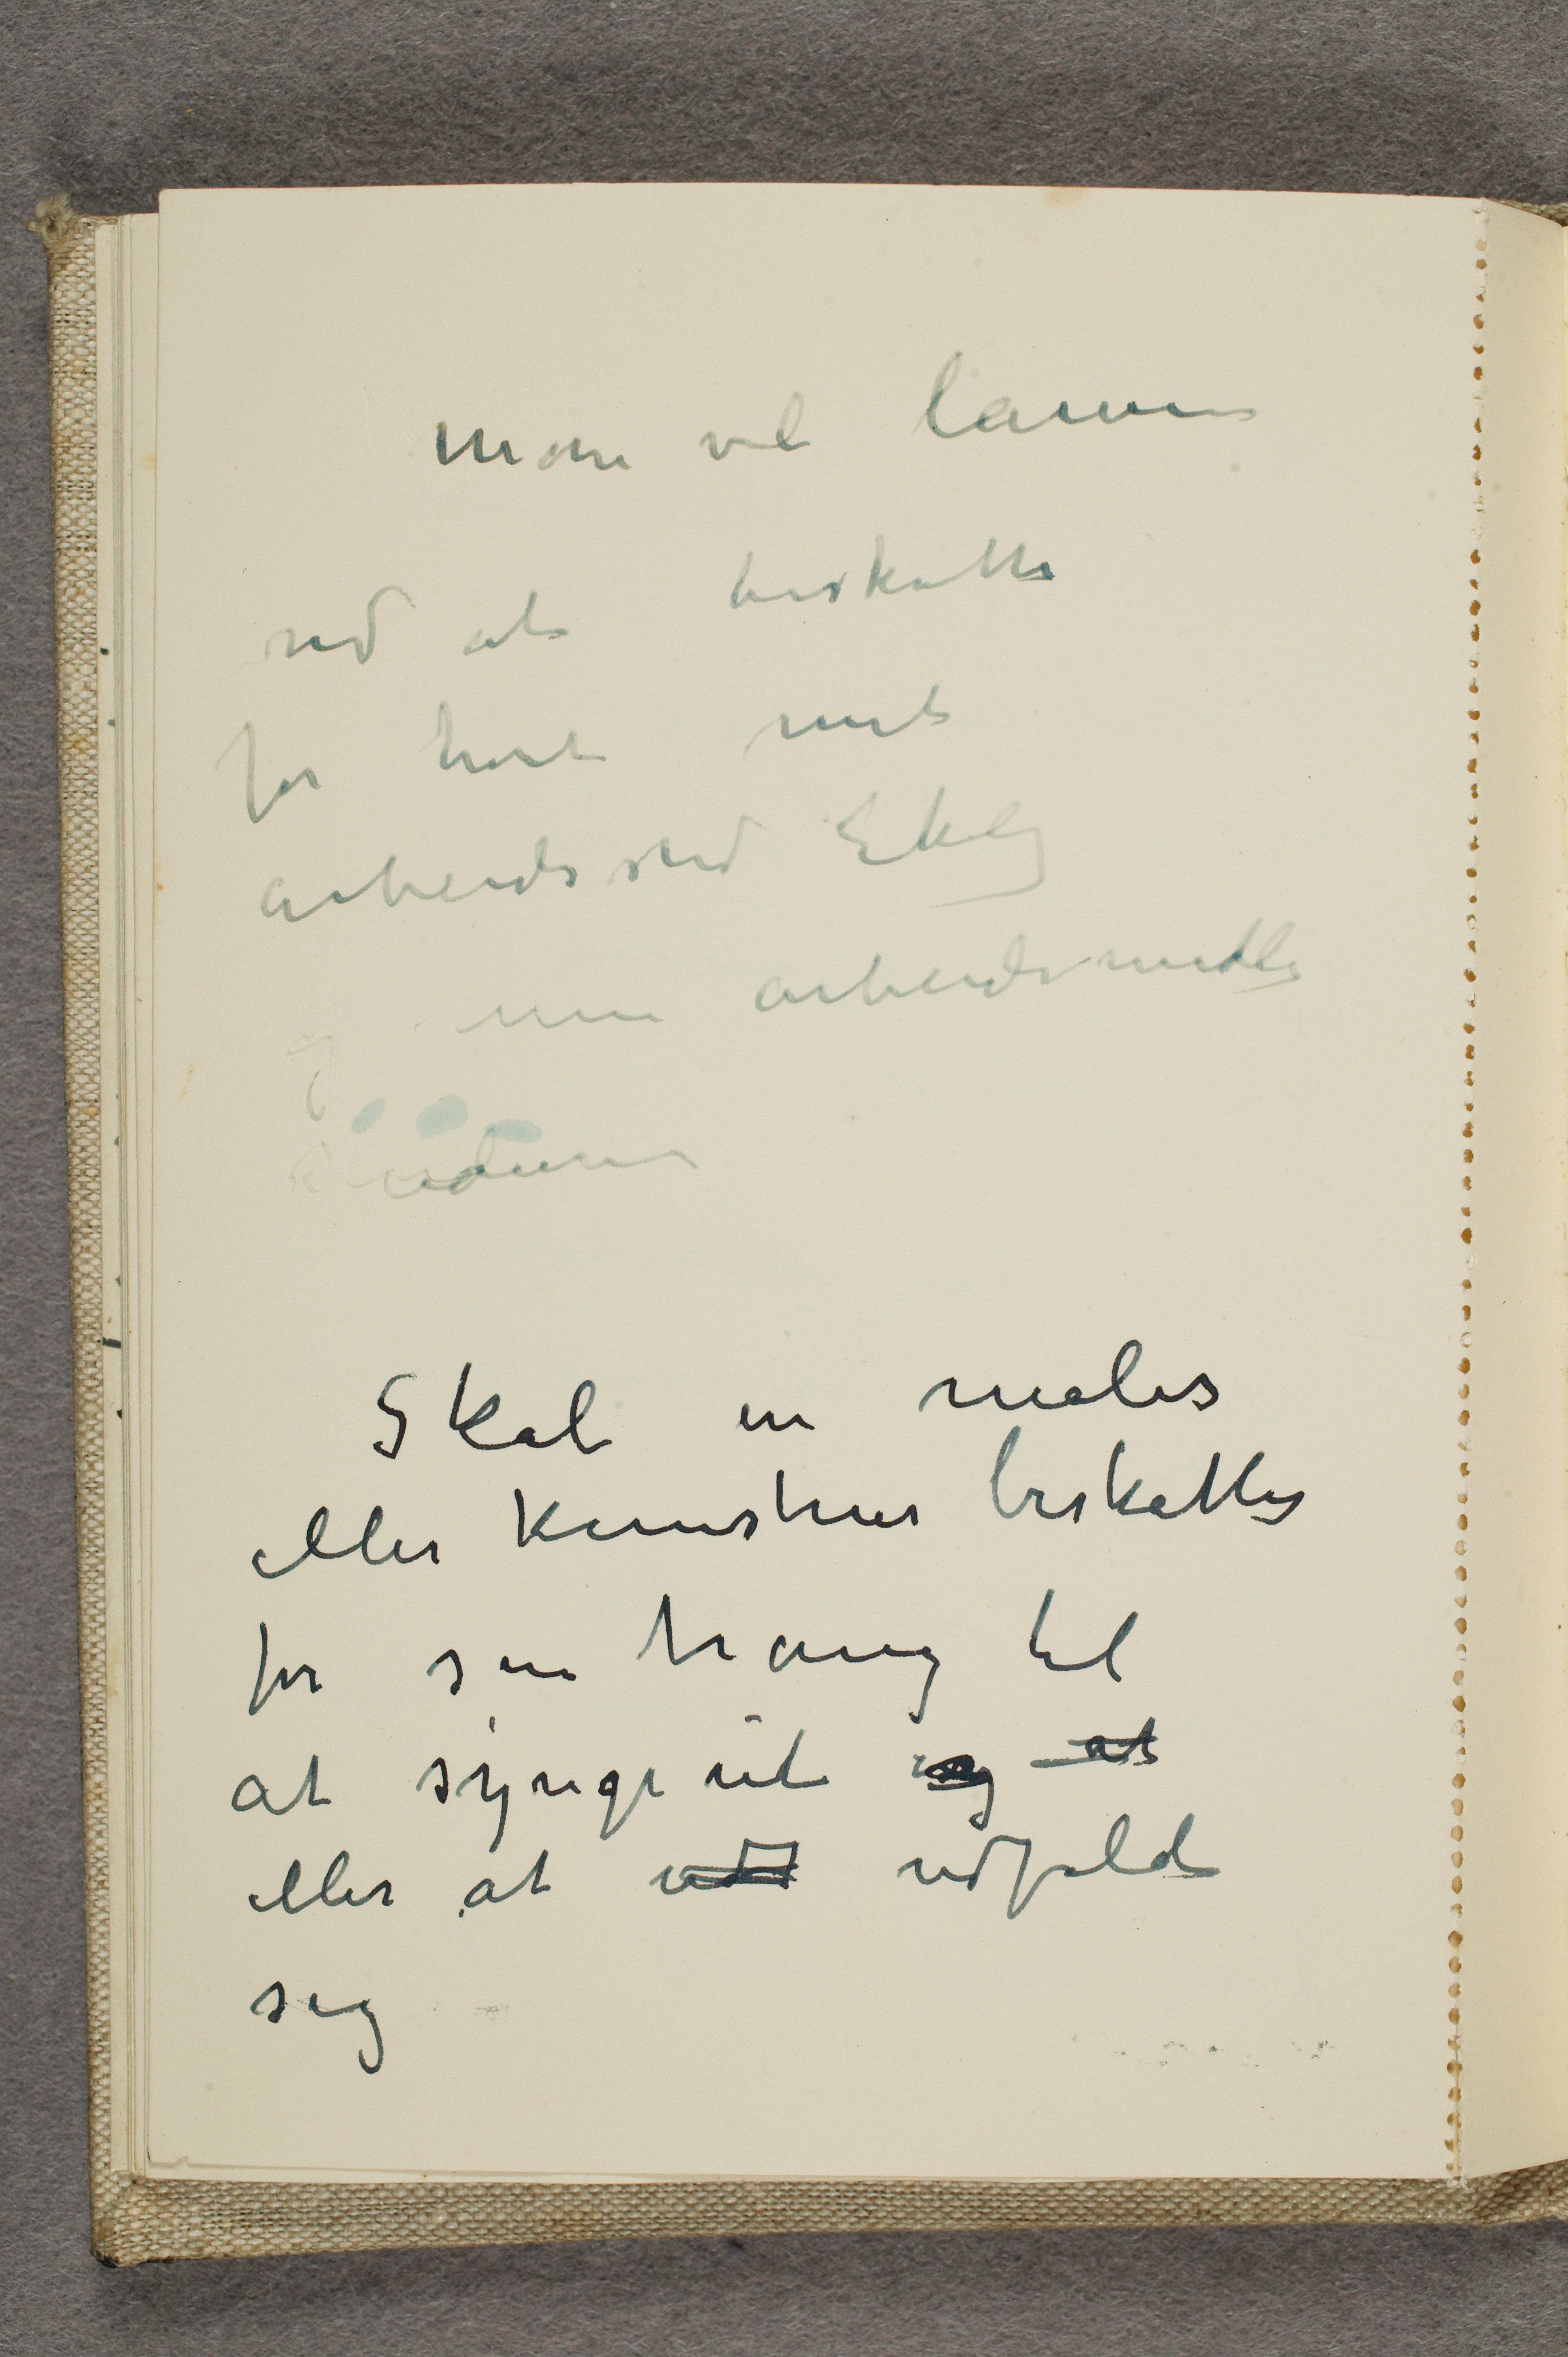 Man vil lamme
ved at beskatte
for hårt mit
arbeidssted Ekely
og mine arbeidsmidler

Skal en maler
eller Kunstner beskattes
for sin trang til
at synge ut og at
eller at udf udfolde
sig